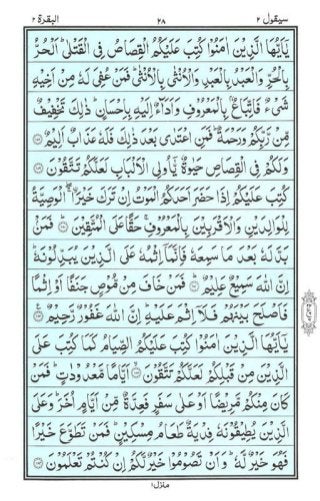 سیقول ٢ ٢٨ البقرة ٢
يٰٓاَيُّهَا الَّذِيْنَ اٰمَنُوْا كُتِبَ عَلَيْكُمُ الْقِصَاصُ فِى الْقَتْلٰى ؕ اَلْحُرُّ
بِالْحُرِّ وَالْعَبْدُ بِالْعَبْدِ وَالْاُنْثٰى بِالْاُنْثٰى ؕ فَمَنْ عُفِىَ لَهٗ مِنْ اَخِيْهِ
شَىْءٌ فَاتِّبَاعٌۢ بِالْمَعْرُوْفِ وَاَدَآءٌ اِلَيْهِ بِاِحْسَانٍ ؕ ذٰلِكَ تَخْفِيْفٌ
مِّنْ رَّبِّكُمْ وَرَحْمَةٌ ؕ فَمَنِ اعْتَدٰى بَعْدَ ذٰلِكَ فَلَهٗ عَذَابٌ اَلِيْمٌ ﴿١٧٨﴾
وَلَكُمْ فِى الْقِصَاصِ حَيٰوةٌ يّٰٓاُولِى الْاَلْبَابِ لَعَلَّكُمْ تَتَّقُوْنَ ﴿١٧٩﴾
كُتِبَ عَلَيْكُمْ اِذَا حَضَرَ اَحَدَكُمُ الْمَوْتُ اِنْ تَرَكَ خَيْرَا ۖۚ اۨلْوَصِيَّةُ
لِلْوَالِدَيْنِ وَالْاَقْرَبِيْنَ بِالْمَعْرُوْفِ ۚ حَقًّا عَلَى الْمُتَّقِيْنَ ﴿١٨٠﴾ فَمَنْۢ
بَدَّلَهٗ بَعْدَ مَا سَمِعَهٗ فَاِنَّمَاۤ اِثْمُهٗ عَلَى الَّذِيْنَ يُبَدِّلُوْنَهٗ ؕ
اِنَّ اللّٰهَ سَمِيْعٌ عَلِيْمٌ ﴿١٨١﴾ فَمَنْ خَافَ مِنْ مُّوْصٍ جَنَفًا اَوْ اِثْمًا
فَاَصْلَحَ بَيْنَهُمْ فَلَاۤ اِثْمَ عَلَيْهِ ؕ اِنَّ اللّٰهَ غَفُوْرٌ رَّحِيْمٌ ﴿١٨٢﴾
يٰٓاَيُّهَا الَّذِيْنَ اٰمَنُوْا كُتِبَ عَلَيْكُمُ الصِّيَامُ كَمَا كُتِبَ عَلَى
الَّذِيْنَ مِنْ قَبْلِكُمْ لَعَلَّكُمْ تَتَّقُوْنَ ﴿١٨٣﴾ اَيَّامًا مَّعْدُوْدٰتٍ ؕ فَمَنْ
كَانَ مِنْكُمْ مَّرِيْضًا اَوْ عَلٰى سَفَرٍ فَعِدَّةٌ مِّنْ اَيَّامٍ اُخَرَ ؕ وَعَلَى
الَّذِيْنَ يُطِيْقُوْنَهٗ فِدْيَةٌ طَعَامُ مِسْكِيْنٍ ؕ فَمَنْ تَطَوَّعَ خَيْرًا
فَهُوَ خَيْرٌ لَّهٗ ؕ وَاَنْ تَصُوْمُوْا خَيْرٌ لَّكُمْ اِنْ كُنْتُمْ تَعْلَمُوْنَ ﴿١٨٤﴾
منزل ١